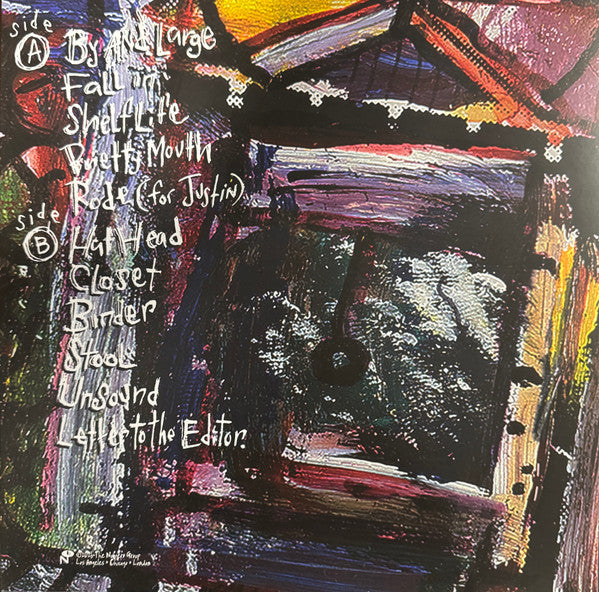 side
A
By And Large
Fall in
Shelf Life
Pretty Mouth
Rode (for Justin)
side
B
Hat Head
Closet
Binder
Stool
Unsound
Letter to the Editor.
The Numero Group
Los Angeles • Chicago • London